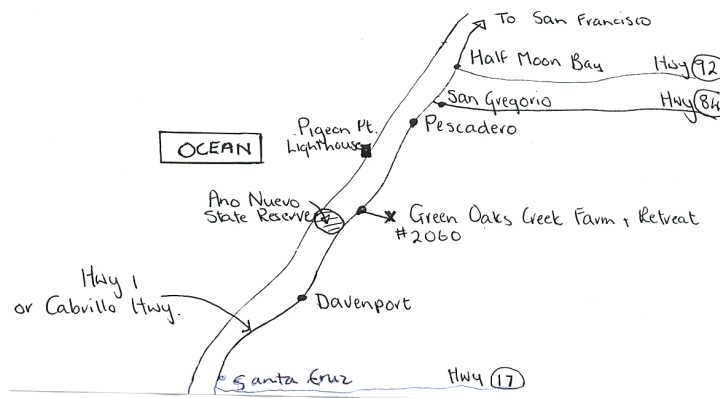 To San Francisco
Half Moon Bay
Hwy 92
San Gregorio
Hwy 84
Pescadero
Pigeon Pt.
Lighthouse
OCEAN
Ano Nuevo
State Reserve
Green Oaks Creek Farm & Retreat
#2060
Hwy 1
or Cabrillo Hwy.
Davenport
Santa Cruz
Hwy 17